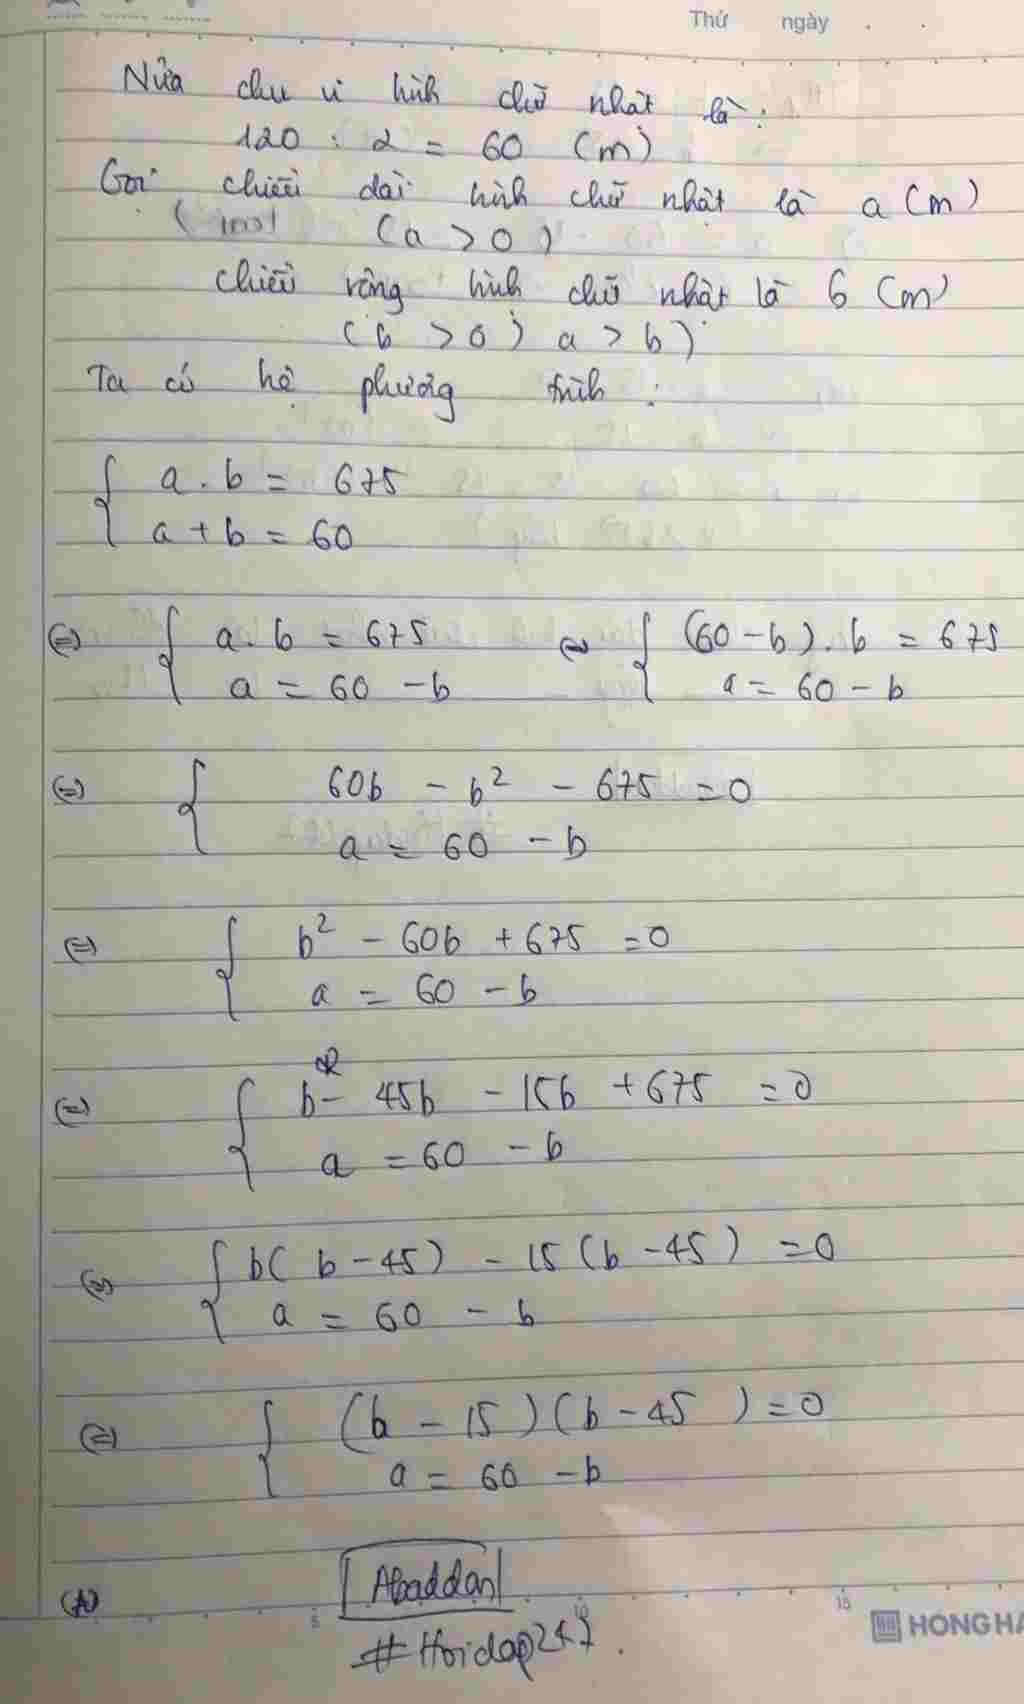 Thứ ngày
Nửa chu vi hình chữ nhật là:
120 : 2 = 60 (m)
Gọi chiều dài hình chữ nhật là a (m)
(a > 0)
chiều rộng hình chữ nhật là b (m)
(b > 0) a > b)
Ta có hệ phương trình :
a . b = 675
a + b = 60
(=) a . b = 675 (=) (60 - b) . b = 675
a = 60 - b a = 60 - b
(=) 60b - b² - 675 = 0
a = 60 - b
(=) b² - 60b + 675 = 0
a = 60 - b
(=) b² - 45b - 15b + 675 = 0
a = 60 - b
(=) b( b - 45) - 15 (b - 45) = 0
a = 60 - b
(=) (b - 15) (b - 45) = 0
a = 60 - b
Abaddon
5 10 15
HỒNG HÀ
#Hoidap247.